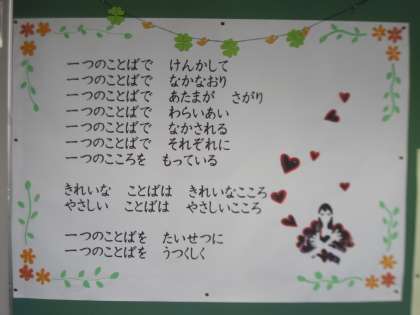 一つのことばで　けんかして
一つのことばで　なかなおり
一つのことばで　あたまが　さがり
一つのことばで　わらいあい
一つのことばで　なかされる
一つのことばで　それぞれに
一つのこころを　もっている
きれいな　ことばは　きれいなこころ
やさしい　ことばは　やさしいこころ
一つのことばを　たいせつに
一つのことばを　うつくしく